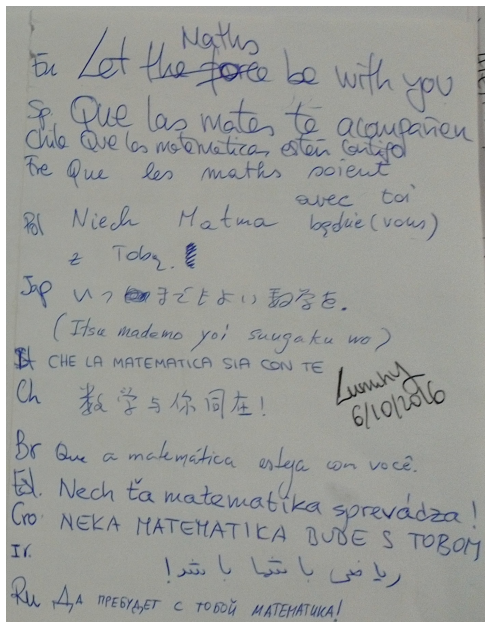 Maths
En Let the force be with you
Sp. Que las mates te acompañen
Chile Que las matemáticas estén contigo
Fre Que les maths soient
avec toi
(vous)
Pol Niech Matma będzie
z Tobą.
Jap いつまでもよい数学を。
(Itsu mademo yoi suugaku wo)
It CHE LA MATEMATICA SIA CON TE
Ch 数学与你同在!
6/10/2016
Br Que a matemática esteja com você.
Nech ťa matematika sprevádza!
Cro NEKA MATEMATIKA BUDE S TOBOM
Ir.
ریاضی با شما باشد!
Ru ДА ПРЕБУДЕТ С ТОБОЙ МАТЕМАТИКА!